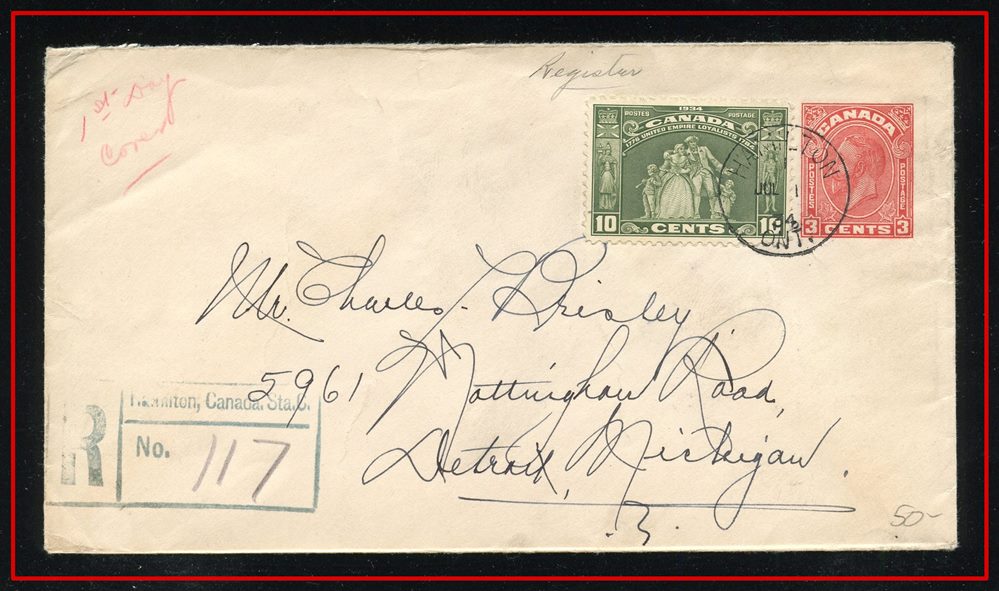 1st Day
Cover
Register
1934
POSTES POSTAGE
CANADA
1776 UNITED EMPIRE LOYALISTS 1784
10 CENTS 10
CANADA
POSTES POSTAGE
3 CENTS 3
HAMILTON
JUL 1
34
ONT.
Mr. Charles Brisley
5961 Nottingham Road,
Detroit, Michigan.
3.
R
Hamilton, Canada. Sta.C.
No. 117
50-